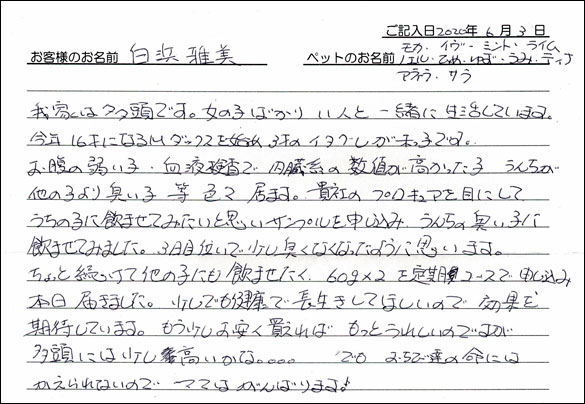 ご記入日2020年 6月 3日
お客様のお名前 白浜 雅美
ペットのお名前 モカ・イヴ・ミント・ライム
ノエル・ひめ・ゆず・うみ・ティナ
サラ
我家は多頭です。女の子ばかり 11人と一緒に生活しています。
今年16才になるMダックスを始め 3才のイタグレが末っ子です。
お腹の弱い子・血液検査で内臓系の数値が高かった子 うんちが
他の子より臭い子 等 色々居ます。貴社のプロキュアを目にして
うちの子に飲ませてみたいと思いサンプルを申し込み、うんちの臭い子に
飲ませてみました。3日目位いで少し臭くなくなったように思います。
ちょっと続けて他の子にも飲ませたく、60g×2を定期コースで申し込み
本日届きました。少しでも健康で長生きしてほしいので 効果を
期待しています。もう少しお安く買えれば もっとうれしいのですが
多頭には少し高いかな。。。。 でも 達の命には
かえられないので ママはがんばります♪